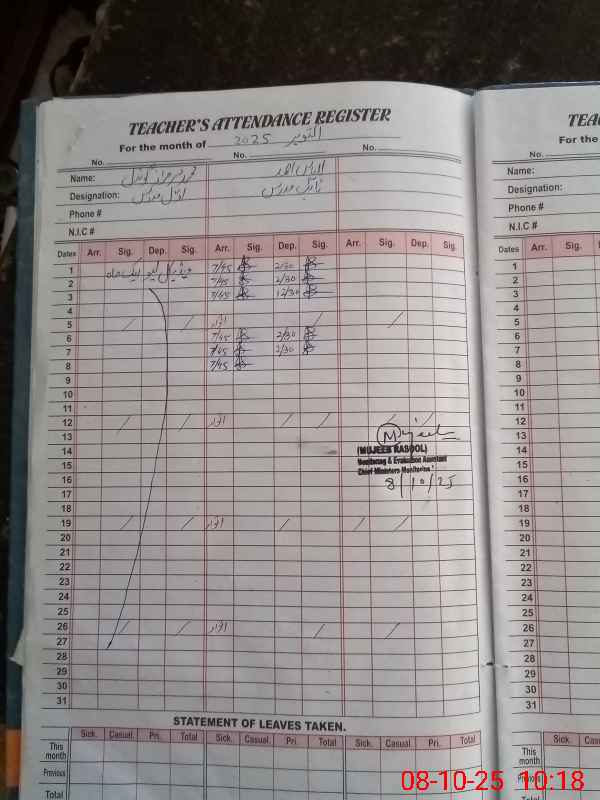 TEACHER'S ATTENDANCE REGISTER
For the month of اکتوبر 2025
No. No. No.
Name:
Designation: اول مدرس نائب مدرس
Phone #
N.I.C #
Dates Arr. Sig. Dep. Sig. Arr. Sig. Dep. Sig. Arr. Sig. Dep. Sig.
1 میڈیکل لیو ایک ماہ 7/45 2/30
2 7/45 2/30
3 7/45 12/30
4
5 اتوار
6 7/45 2/30
7 7/45 2/30
8 7/45
9
10
11
12 اتوار
13 Mujeeb
14 (MUJEEB RASOOL)
15 Monitoring & Evaluation Assistant
Chief Ministers Monitoring
16 8/10/25
17
18
19 اتوار
20
21
22
23
24
25
26 اتوار
27
28
29
30
31
STATEMENT OF LEAVES TAKEN.
Sick. Casual. Pri. Total Sick. Casual. Pri. Total Sick. Casual. Pri. Total
This month
Previous
Total
TEA
For the
No.
Name:
Designation:
Phone #
N.I.C #
Dates Arr. Sig.
1
2
3
4
5
6
7
8
9
10
11
12
13
14
15
16
17
18
19
20
21
22
23
24
25
26
27
28
29
30
31
Sick. Cas
This month
Previous
Total
08-10-25 10:18